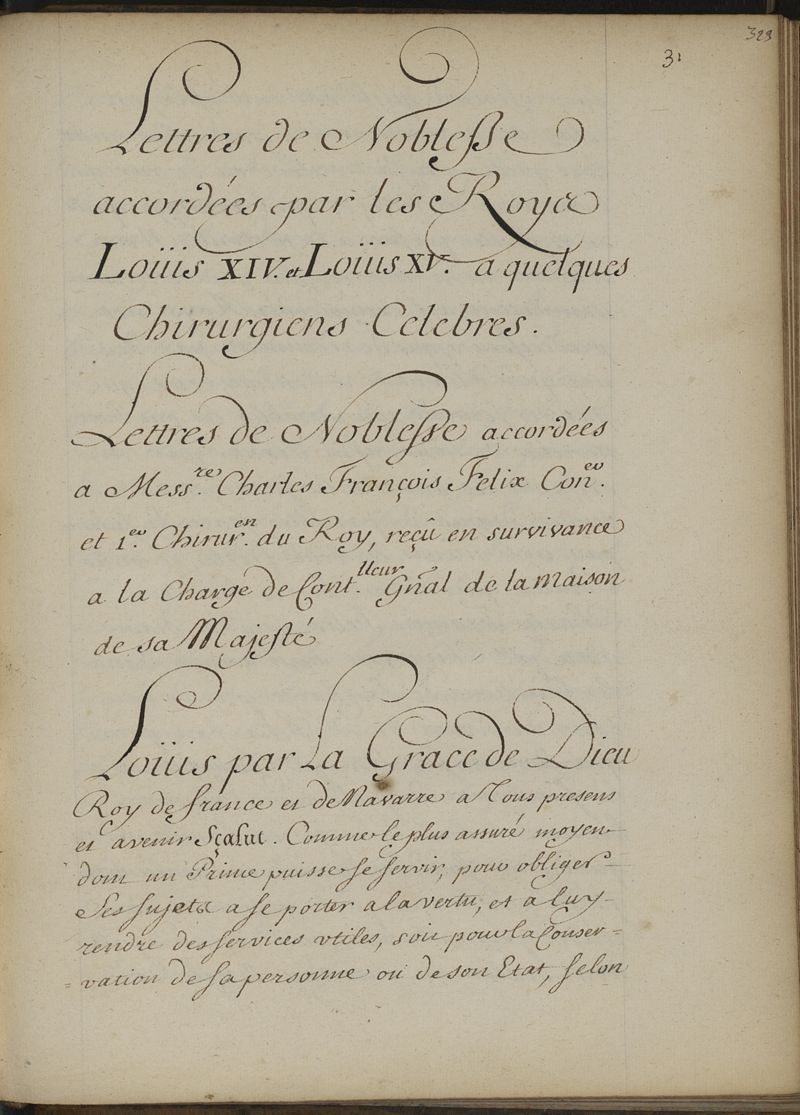 323
31
Lettres de Noblesse
accordées par les Roys
Loüis XIV. et Loüis XV. a quelques
Chirurgiens Celebres.
Lettres de Noblesse accordées
a Mess.re Charles François Felix Con.er
et 1.er Chirur.en du Roy, reçû en survivance
a la Charge de Cont.lleur Gnãl de la Maison
de sa Majesté
Loüis par La Grace de Dieu
Roy de france et de Navarre a Tous presens
et avenir Sçalut. Comme le plus assuré moyen
dont un Prince puisse se servir, pour obliger
Ses sujets a se porter a la vertu, et a luy
rendre des services vtiles, soit pour la Conser=
=vation de sa personne ou de son Etat, selon